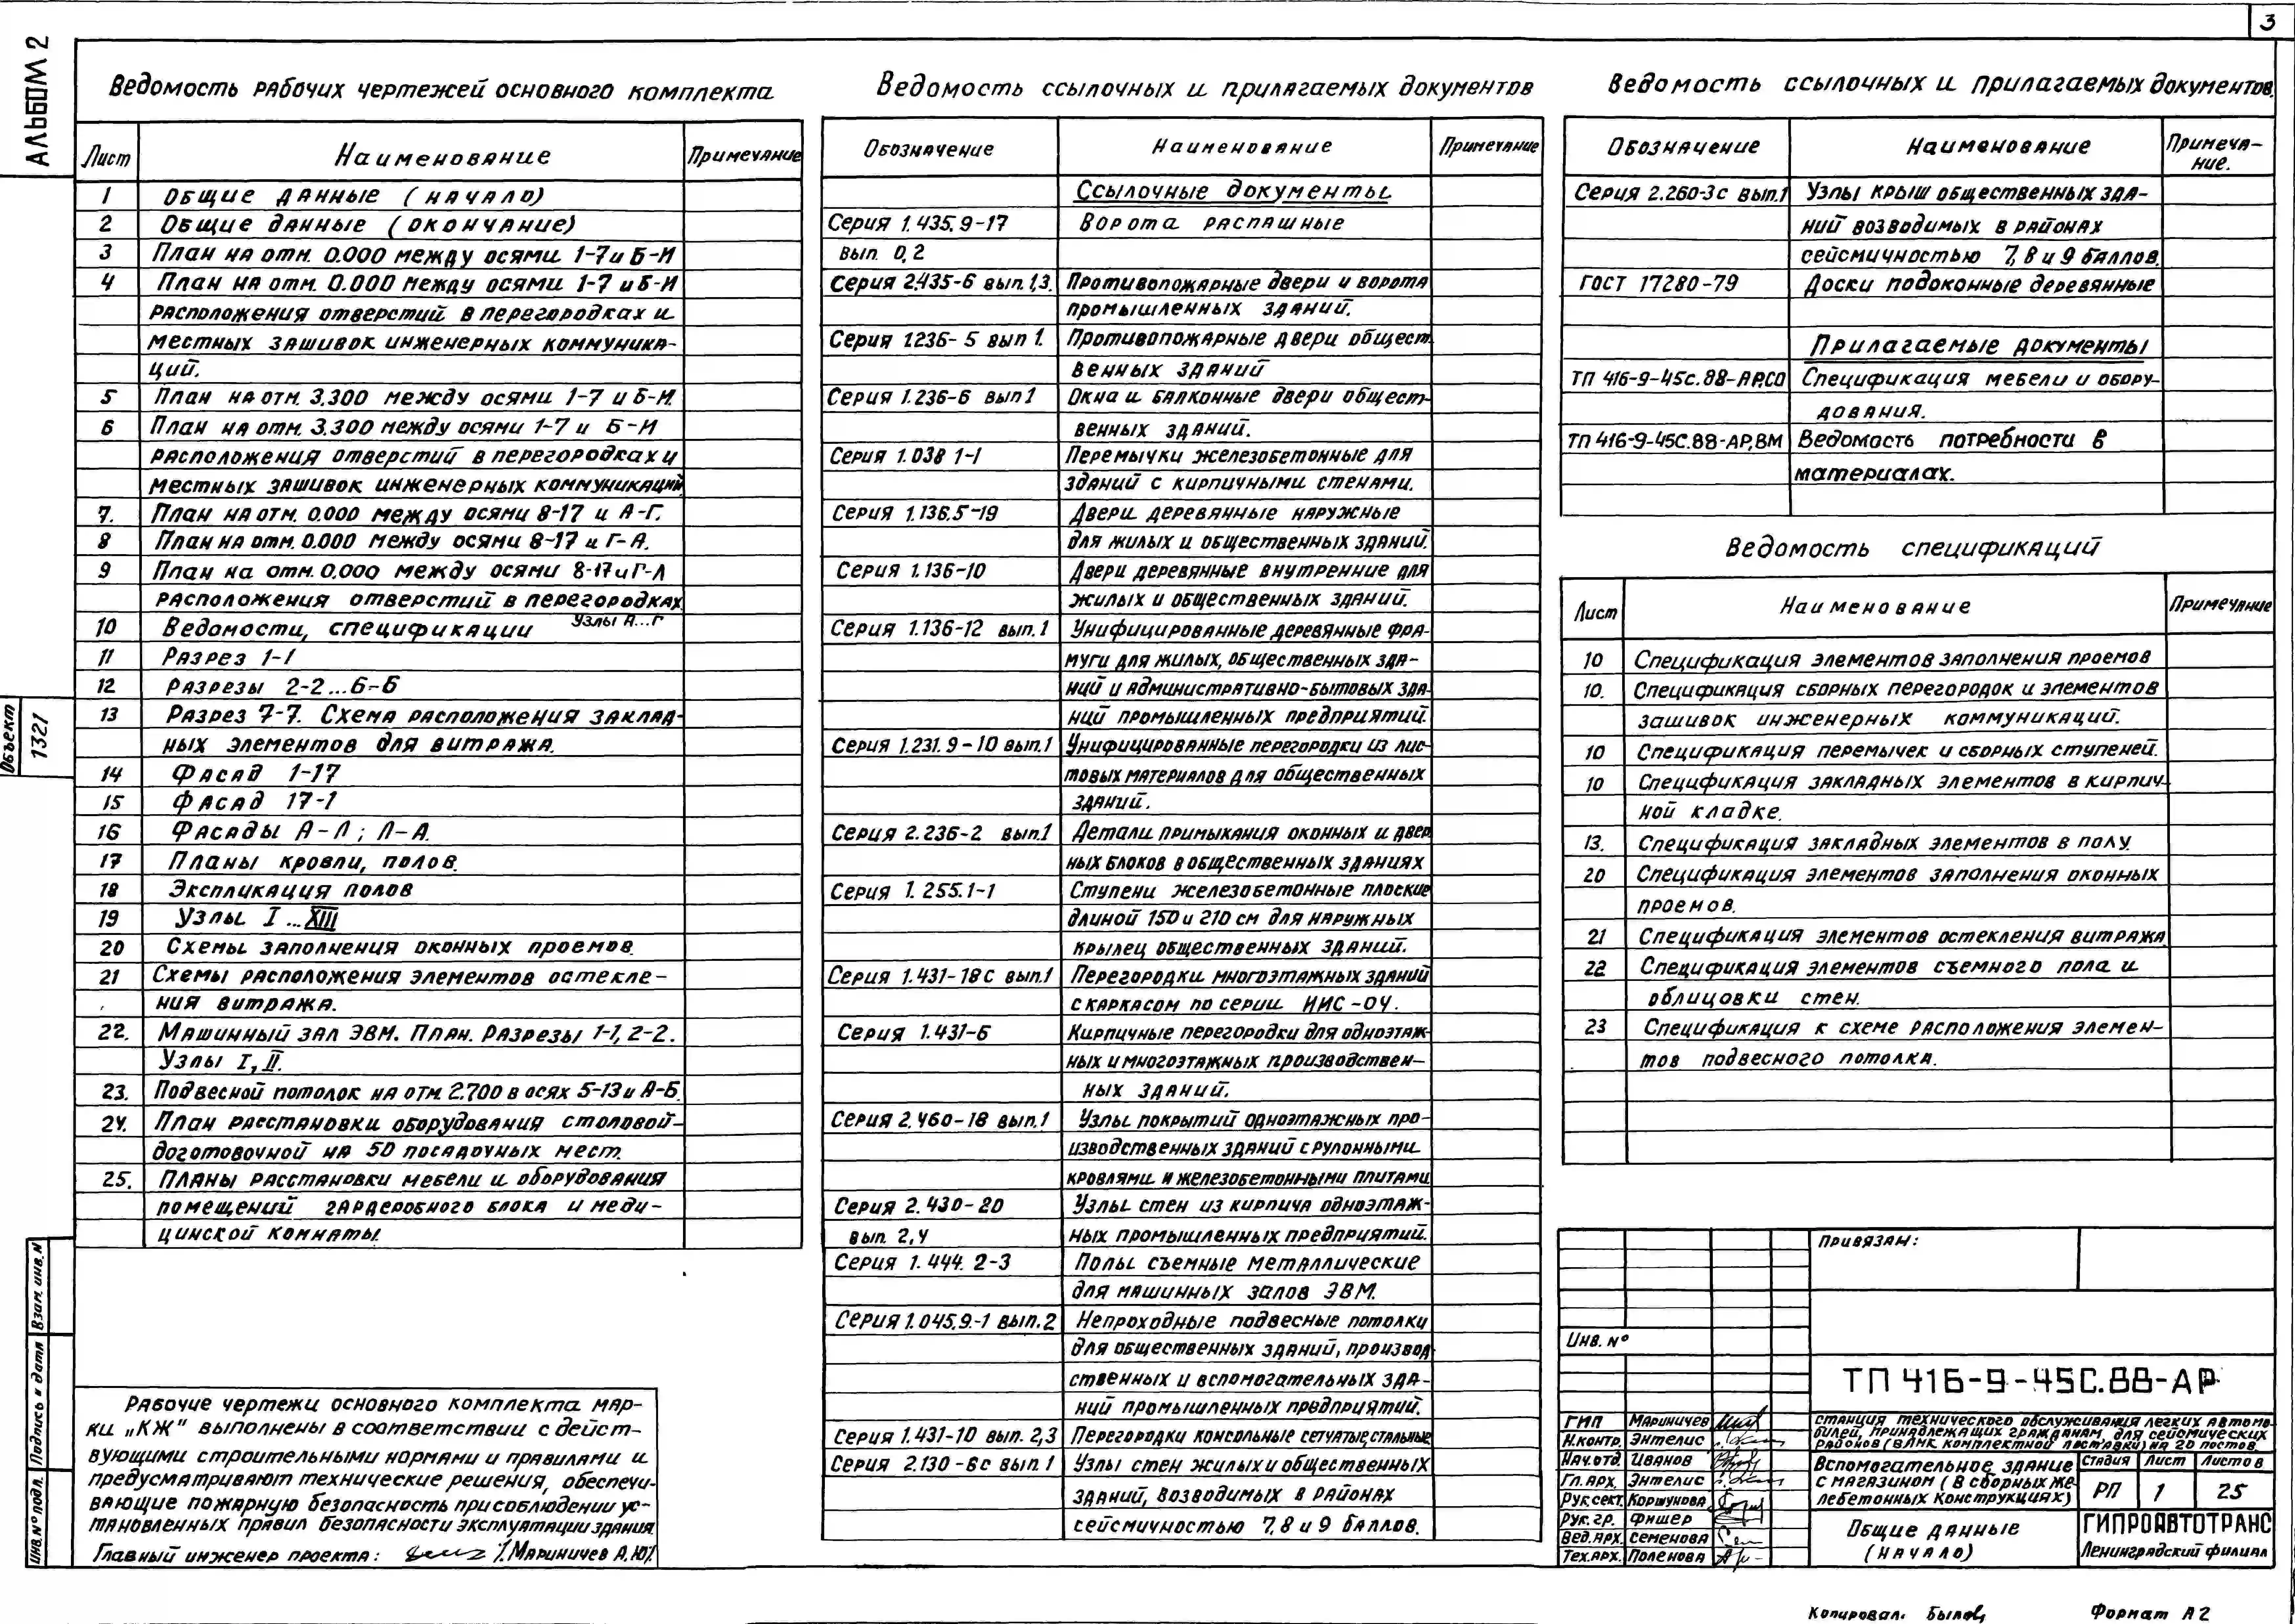 3
АЛЬБОМ 2
Ведомость рабочих чертежей основного комплекта
Лист Наименование Примечание
1 Общие данные (начало)
2 Общие данные (окончание)
3 План на отм. 0.000 между осями 1-7 и Б-И
4 План на отм. 0.000 между осями 1-7 и Б-И
расположения отверстий в перегородках и
местных зашивок инженерных коммуника-
ций.
5 План на отм. 3.300 между осями 1-7 и Б-И.
6 План на отм. 3.300 между осями 1-7 и Б-И
расположения отверстий в перегородках и
местных зашивок инженерных коммуникаций
7. План на отм. 0.000 между осями 8-17 и А-Г.
8 План на отм. 0.000 между осями 8-17 и Г-Л.
9 План на отм. 0.000 между осями 8-17 и Г-Л
расположения отверстий в перегородках
10 Ведомости, спецификации Узлы А...Г
11 Разрез 1-1
12 Разрезы 2-2...6-6
13 Разрез 7-7. Схема расположения заклад-
ных элементов для витража.
14 Фасад 1-17
15 Фасад 17-1
16 Фасады А-Л; Л-А.
17 Планы кровли, полов.
18 Экспликация полов
19 Узлы I...XIII
20 Схемы заполнения оконных проемов.
21 Схемы расположения элементов остекле-
ния витража.
22. Машинный зал ЭВМ. План. Разрезы 1-1, 2-2.
Узлы I, II.
23. Подвесной потолок на отм. 2.700 в осях 5-13 и А-Б.
24. План расстановки оборудования столовой-
доготовочной на 50 посадочных мест.
25. Планы расстановки мебели и оборудования
помещений гардеробного блока и меди-
цинской комнаты.
Ведомость ссылочных и прилагаемых документов
Обозначение Наименование Примечание
Ссылочные документы
Серия 1.435.9-17 Ворота распашные
вып. 0,2
Серия 2.435-6 вып. 1,3. Противопожарные двери и ворота
промышленных зданий.
Серия 1.236-5 вып 1. Противопожарные двери общест
венных зданий
Серия 1.236-6 вып 1 Окна и балконные двери общест-
венных зданий.
Серия 1.038 1-1 Перемычки железобетонные для
зданий с кирпичными стенами.
Серия 1.136.5-19 Двери деревянные наружные
для жилых и общественных зданий.
Серия 1.136-10 Двери деревянные внутренние для
жилых и общественных зданий.
Серия 1.136-12 вып. 1 Унифицированные деревянные фра-
муги для жилых, общественных зда-
ний и административно-бытовых зда-
ний промышленных предприятий.
Серия 1.231.9-10 вып. 1 Унифицированные перегородки из лис-
товых материалов для общественных
зданий.
Серия 2.236-2 вып.1 Детали примыкания оконных и двер
ных блоков в общественных зданиях
Серия 1.255.1-1 Ступени железобетонные плоские
длиной 150 и 210 см для наружных
крылец общественных зданий.
Серия 1.431-18с вып.1 Перегородки многоэтажных зданий
с каркасом по серии ИИС-04.
Серия 1.431-6 Кирпичные перегородки для одноэтаж
ных и многоэтажных производствен-
ных зданий.
Серия 2.460-18 вып.1 Узлы покрытий одноэтажных про-
изводственных зданий с рулонными
кровлями и железобетонными плитами
Серия 2.430-20 Узлы стен из кирпича одноэтаж-
вып. 2,4 ных промышленных предприятий.
Серия 1.444.2-3 Полы съемные металлические
для машинных залов ЭВМ.
Серия 1.045.9-1 вып.2 Непроходные подвесные потолки
для общественных зданий, производ
ственных и вспомогательных зда-
ний промышленных предприятий.
Серия 1.431-10 вып. 2,3 Перегородки консольные сетчатые, стальные
Серия 2.130-6с вып. 1 Узлы стен жилых и общественных
зданий, возводимых в районах
сейсмичностью 7,8 и 9 баллов.
Ведомость ссылочных и прилагаемых документов.
Обозначение Наименование Примеча-
ние.
Серия 2.260-3с вып.1 Узлы крыш общественных зда-
ний возводимых в районах
сейсмичностью 7,8 и 9 баллов.
ГОСТ 17280-79 Доски подоконные деревянные
Прилагаемые документы
ТП 416-9-45с.88-АР.СО Спецификация мебели и обору-
дования.
ТП 416-9-45С.88-АР.ВМ Ведомость потребности в
материалах.
Ведомость спецификаций
Лист Наименование Примечание
10 Спецификация элементов заполнения проемов
10. Спецификация сборных перегородок и элементов
зашивок инженерных коммуникаций.
10 Спецификация перемычек и сборных ступеней.
10 Спецификация закладных элементов в кирпич-
ной кладке.
13. Спецификация закладных элементов в полу
20 Спецификация элементов заполнения оконных
проемов.
21 Спецификация элементов остекления витража
22 Спецификация элементов съемного пола и
облицовки стен.
23 Спецификация к схеме расположения элемен-
тов подвесного потолка.
Объект
1321
Взам. инв. №
Подпись и дата
Инв. № подл.
Рабочие чертежи основного комплекта мар-
ки „КЖ" выполнены в соответствии с дейст-
вующими строительными нормами и правилами и
предусматривают технические решения, обеспечи-
вающие пожарную безопасность при соблюдении ус-
тановленных правил безопасности эксплуатации здания.
Главный инженер проекта: /Мариничев А.Ю/.
Привязан:
Инв. №
ТП 416-9-45С.88-АР
ГИП Мариничев
Н.контр. Энтелис
Нач.отд. Иванов
Гл.арх. Энтелис
Рук.сект. Коршунова
Рук.гр. Фишер
Вед.арх. Семенова
Тех.арх. Поленова
Станция технического обслуживания легких автомо
билей, принадлежащих гражданам, для сейсмических
районов (вАМК комплектной поставки) на 20 постов.
Вспомогательное здание
с магазином (в сборных же-
лебетонных конструкциях)
Стадия Лист Листов
РП 1 25
Общие данные
(начало)
ГИПРОАВТОТРАНС
Ленинградский филиал
Копировал. Формат А2